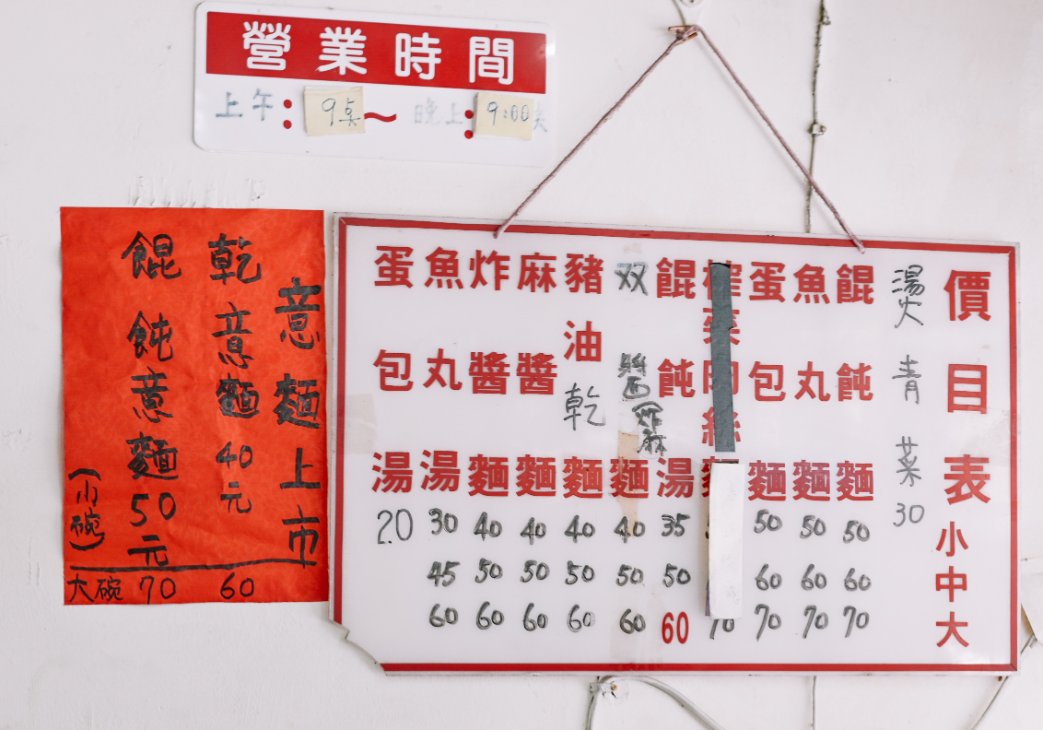 營業時間
上午：9点～晚上：9:00
意麵上市
乾意麵40元
餛飩意麵50元
(小碗)
大碗 70 60
價目表 小 中 大
燙青菜 30
餛飩麵 50 60 70
魚丸麵 50 60 70
蛋包麵 50 60 70
榨菜肉絲 70
餛飩湯 35 50 60
双醬炸麻麵 40 50 60
豬油乾麵 40 50 60
麻醬麵 40 50 60
炸醬麵 40 50 60
魚丸湯 30 45 60
蛋包湯 20